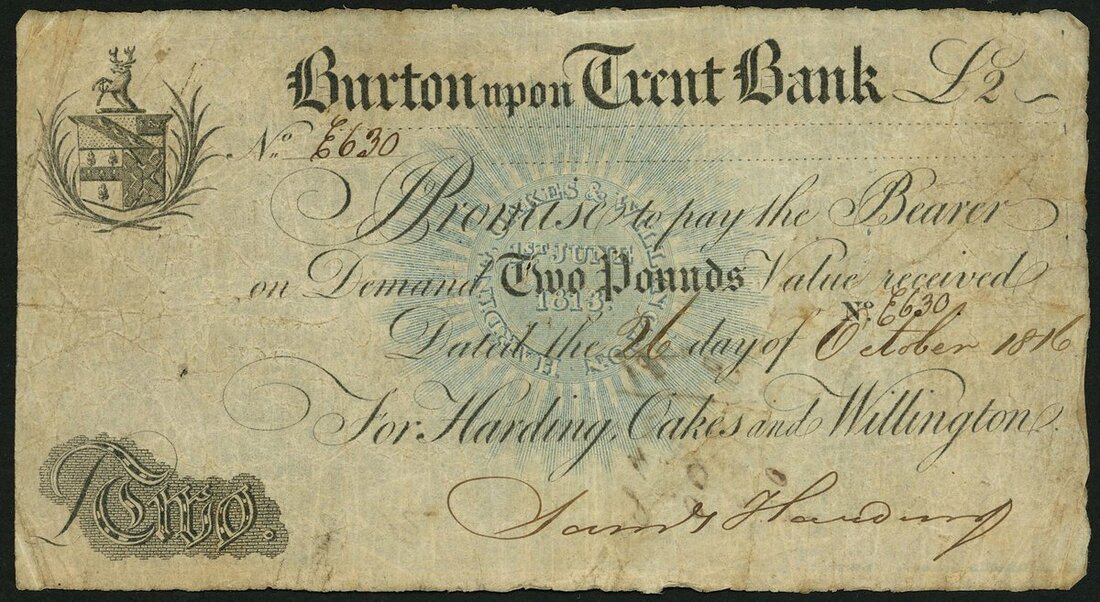 Burton upon Trent Bank £2
No. E630
I Promise to pay the Bearer
on Demand Two Pounds Value received
No. E630
Dated the 26 day of October 1816
For Harding, Oakes and Willington.
Two.
Saml. Harding
HARDING OAKES & WILLINGTON
1ST JUNE
1813.